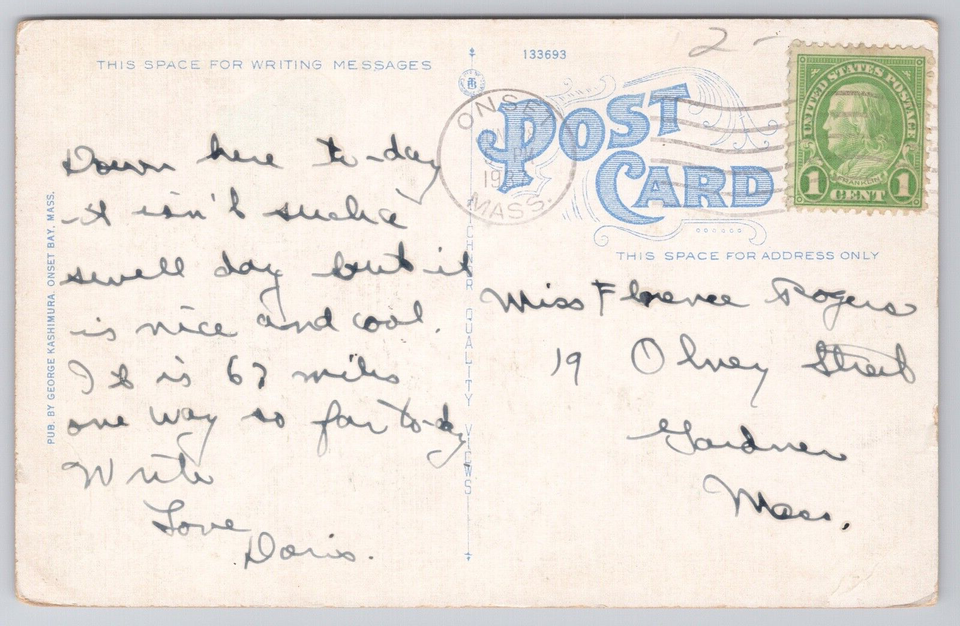 THIS SPACE FOR WRITING MESSAGES
133693
2-
POST CARD
ONSET
MASS.
UNITED STATES POSTAGE
FRANKLIN
1 CENT 1
THIS SPACE FOR ADDRESS ONLY
PUB. BY GEORGE KASHIMURA, ONSET BAY, MASS.
QUALITY VIEWS
Down here to-day
it isn't such a
swell day but it
is nice and cool.
It is 67 miles
one way so far to-day
Write
Love
Doris.
Miss Florence Rogers
19 Olney Street
Gardner
Mass.